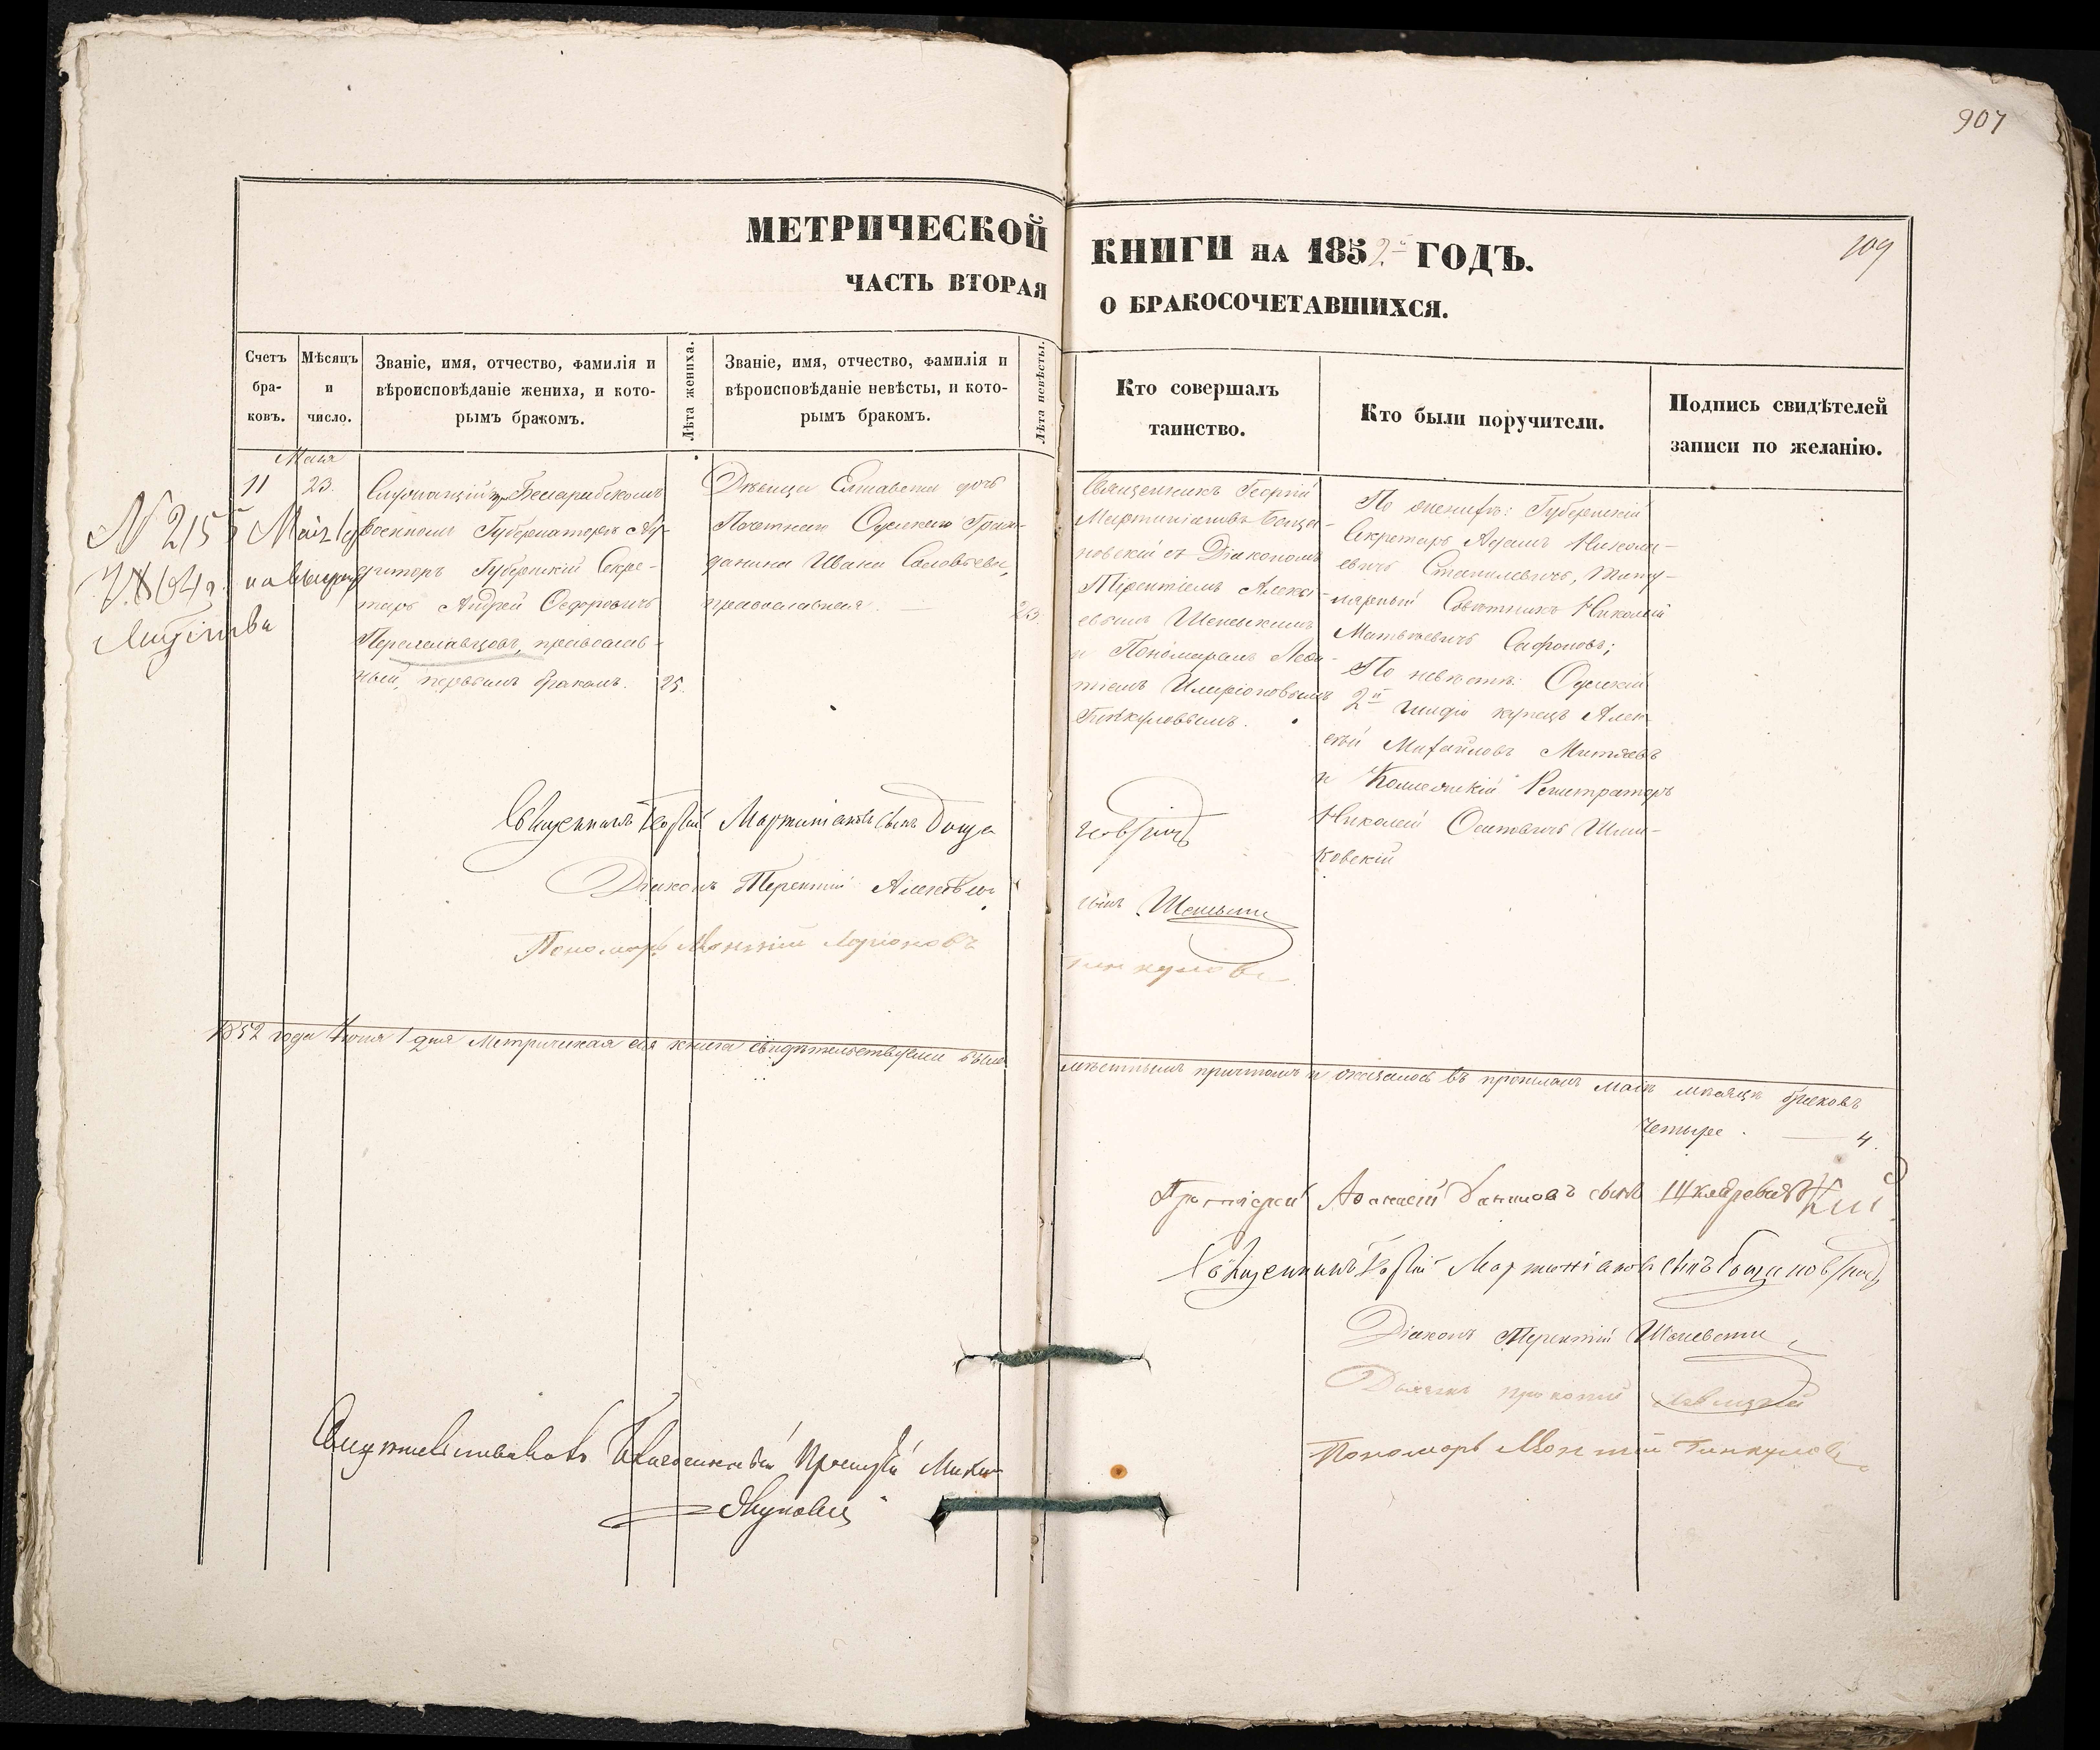 907
109
МЕТРИЧЕСКОЙ КНИГИ НА 1852й ГОДЪ.
ЧАСТЬ ВТОРАЯ О БРАКОСОЧЕТАВШИХСЯ.
Счетъ бра-
ковъ.
Мѣсяцъ
и
число.
Званіе, имя, отчество, фамилія и
вѣроисповѣданіе жениха, и кото-
рымъ бракомъ.
Лѣта жениха.
Званіе, имя, отчество, фамилія и
вѣроисповѣданіе невѣсты, и кото-
рымъ бракомъ.
Лѣта невѣсты.
Кто совершалъ
таинство.
Кто были поручители.
Подпись свидѣтелей
записи по желанію.
Мая
11
23.
Служащій при Бессарабскомъ
Военномъ Губернаторѣ
Губернскій Секре-
тарь Андрей Ѳедоровичъ
Переславцовъ, православ-
ный, первымъ бракомъ. 25.
Дѣвица Елисавета дочь
Почетнаго Одескаго Граж-
данина Ивана Соловьева,
православная. 23.
Священникъ Георгій
Мартиніановъ Боща-
новскій съ Діакономъ
Терентіемъ Алексѣ-
евымъ
и Пономаремъ Леон-
тіемъ Иларіоновымъ
Гинкуловымъ.
По женихѣ: Губернскій
Секретарь Адамъ Никола-
евичъ Станилевичъ, Титу-
лярный Совѣтникъ Николай
Матвѣевичъ Сафоновъ;
По невѣстѣ: Одескій
2й гильдіи купецъ Алек-
сѣй Михайловъ Митяевъ
и Коллежскій Регистраторъ
Николай Осиповичъ
ковскій
№ 215
Священникъ Георгій Мартиніановъ сынъ Боща новскій
Діаконъ Терентій Алексѣевъ сынъ
Пономарь Леонтій Ларіоновъ Гинкуловъ
1852 года Іюня 1 дня Метрическая сія книга свидѣтельствуема была мѣстнымъ причтомъ и оказалось въ прошломъ Маѣ мѣсяцѣ браковъ
четыре. — 4.
Протоіерей Аѳанасій Даниловъ сынъ
Священникъ Георгій Мартиніановъ сынъ Бощановскій
Діаконъ Терентій
Дьячекъ Прокопій Левицкій
Пономарь Леонтій Гинкуловъ
Свидѣтельствовалъ Благочинный Протоіерей